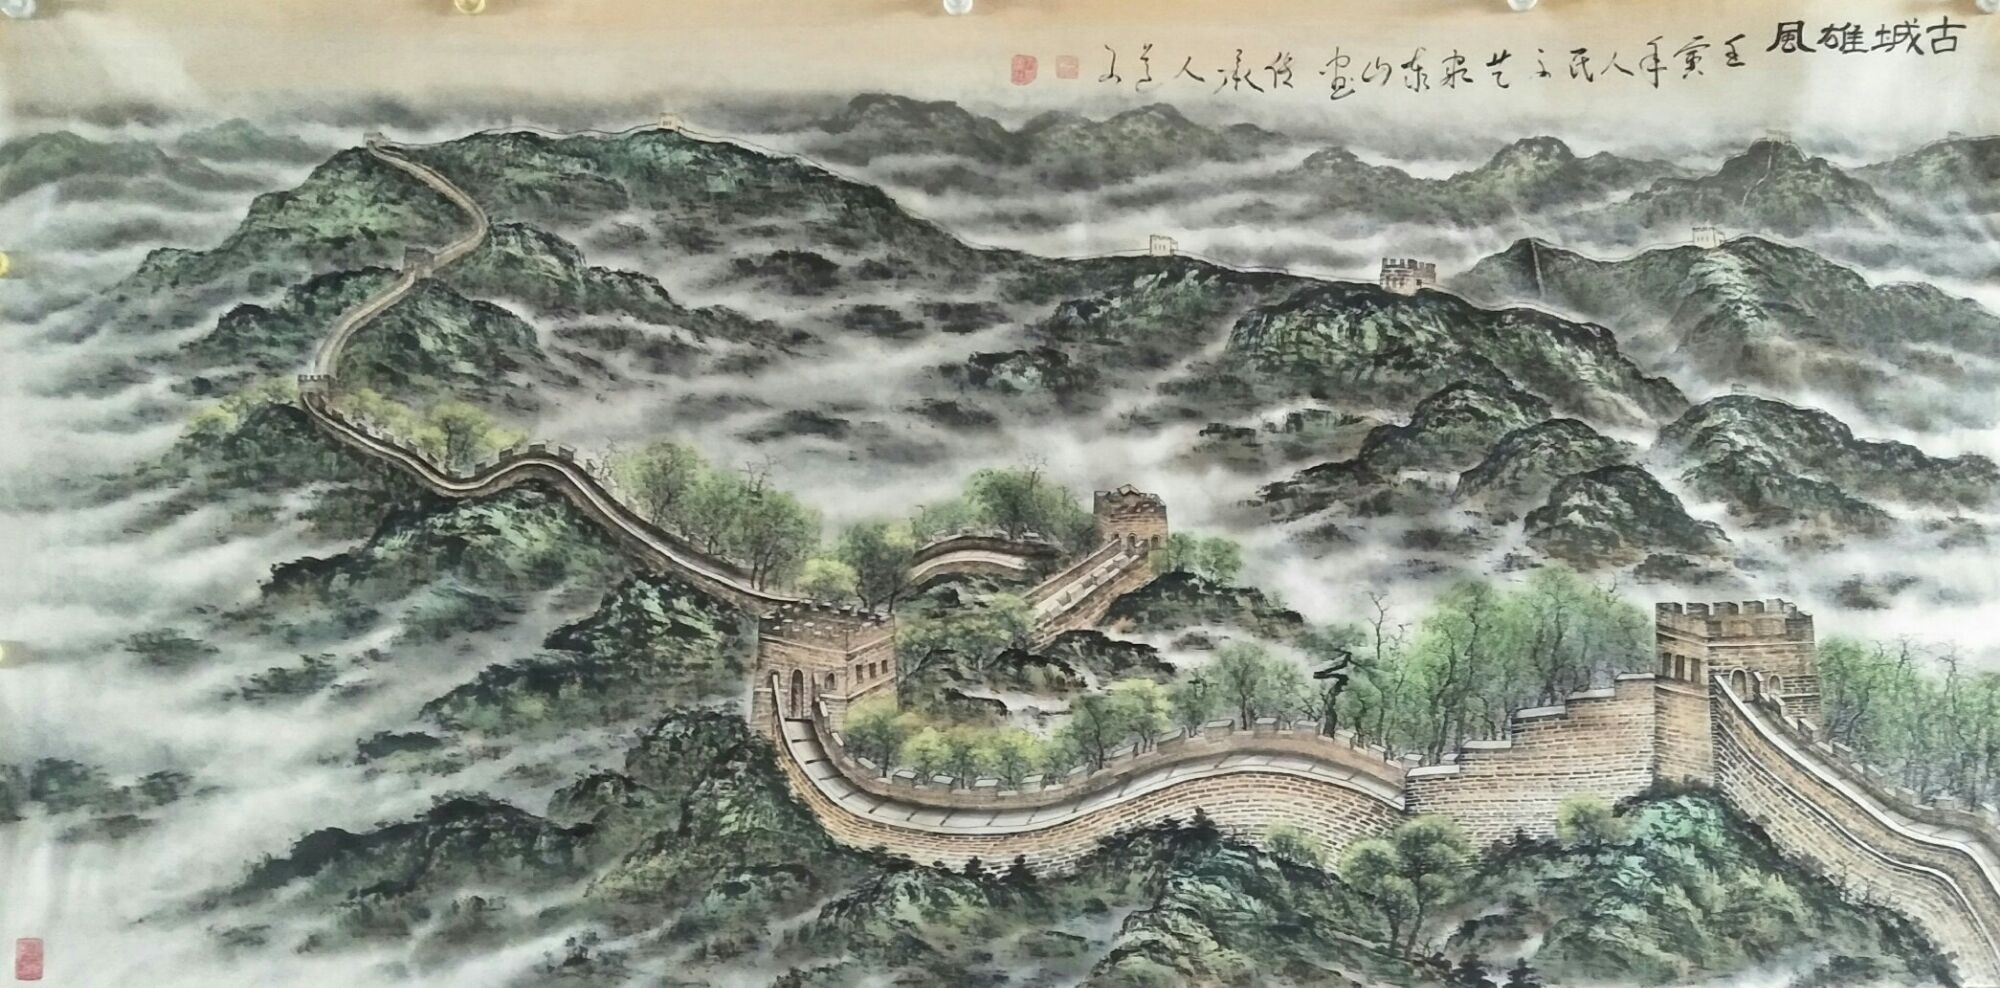 古城雄風
壬寅年人民文艺家泰山画传承人道文